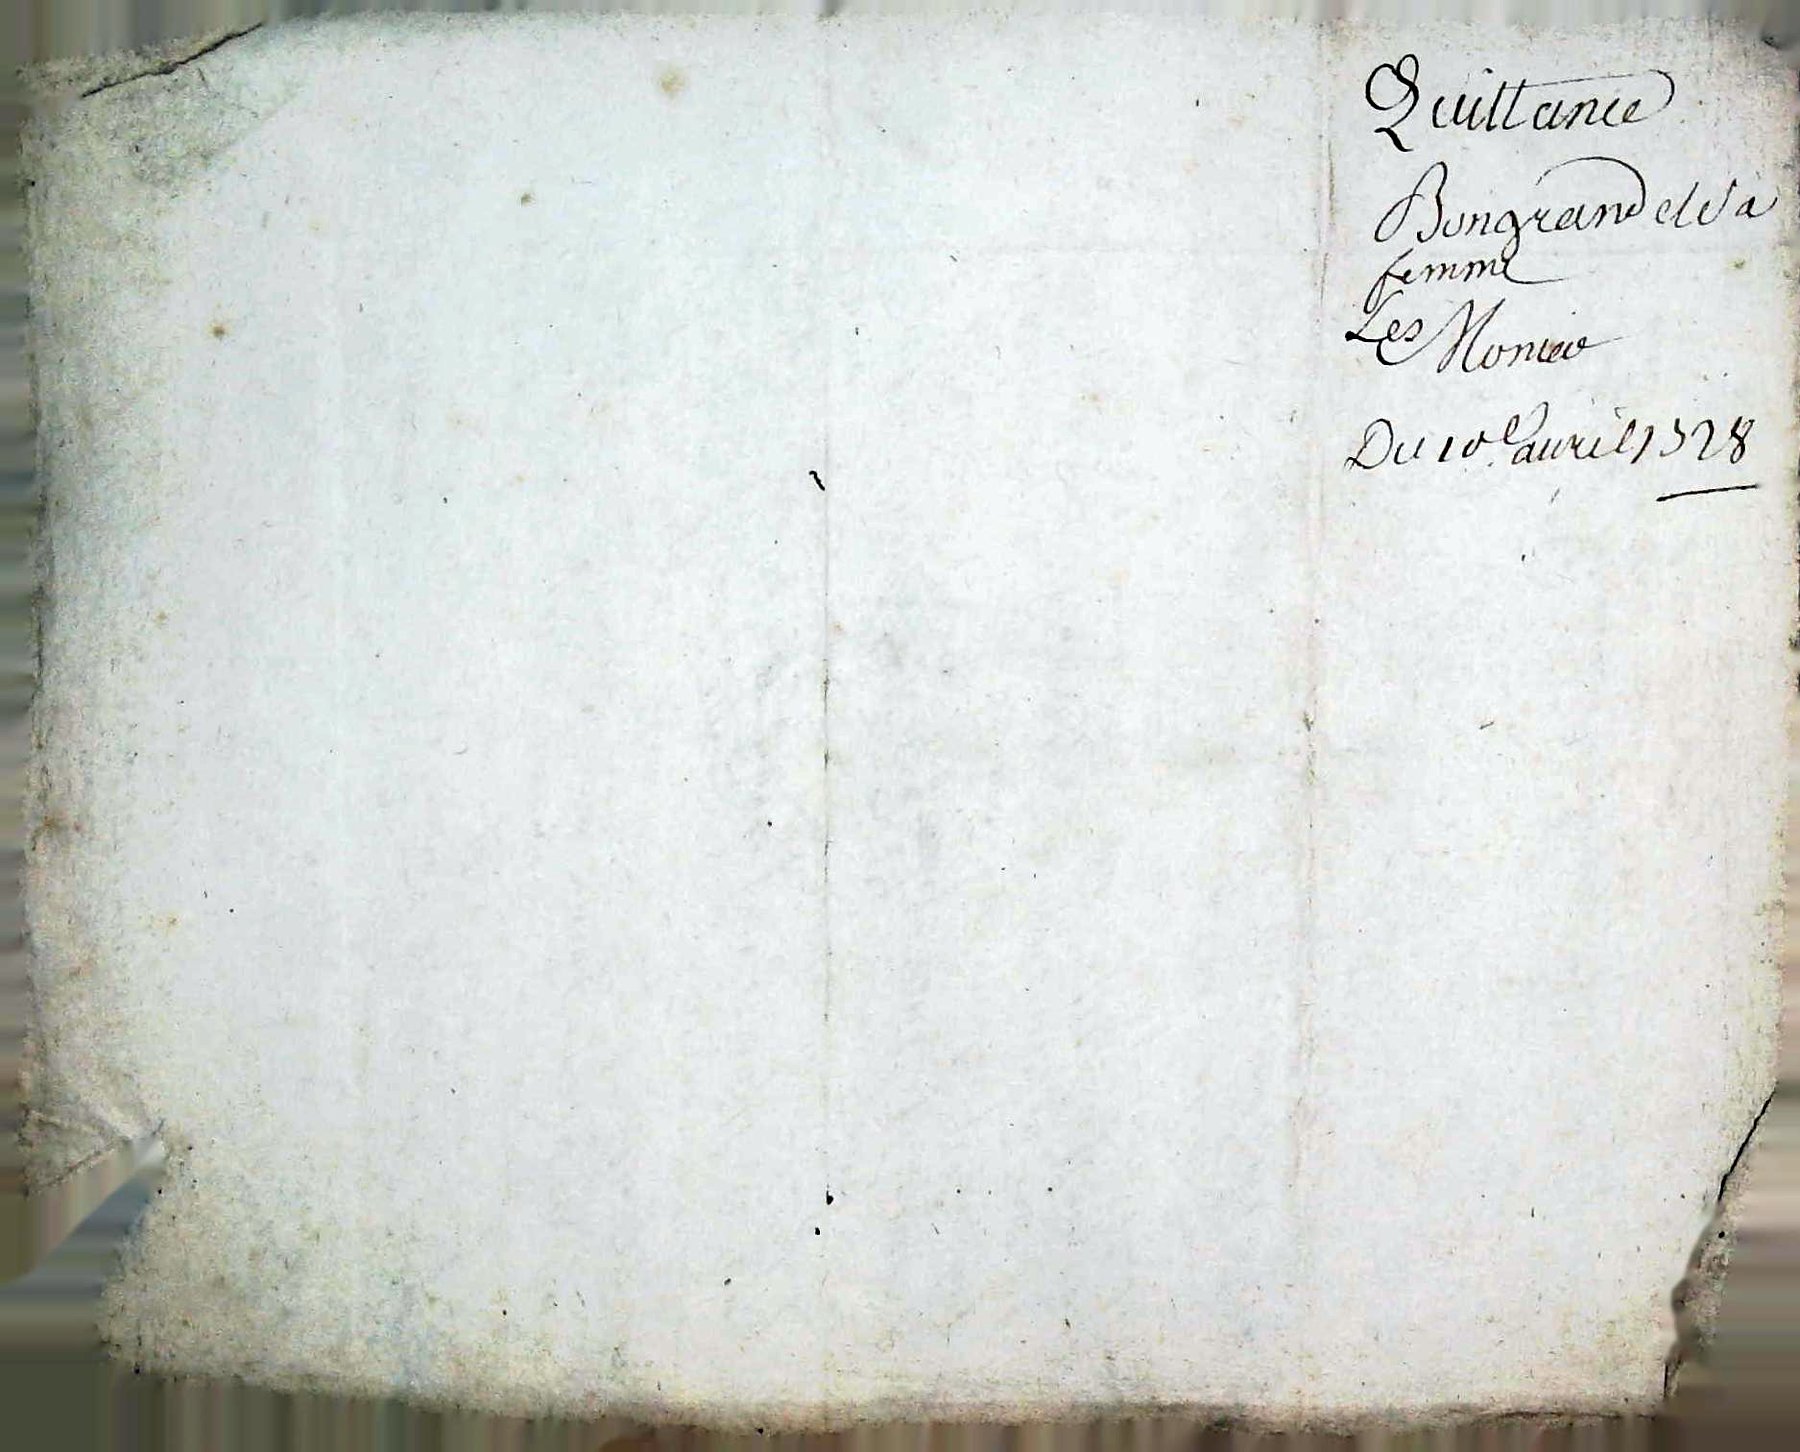 Quittance
Bongrand et Sa
femme
Les Monier
Du 10e avril 1328